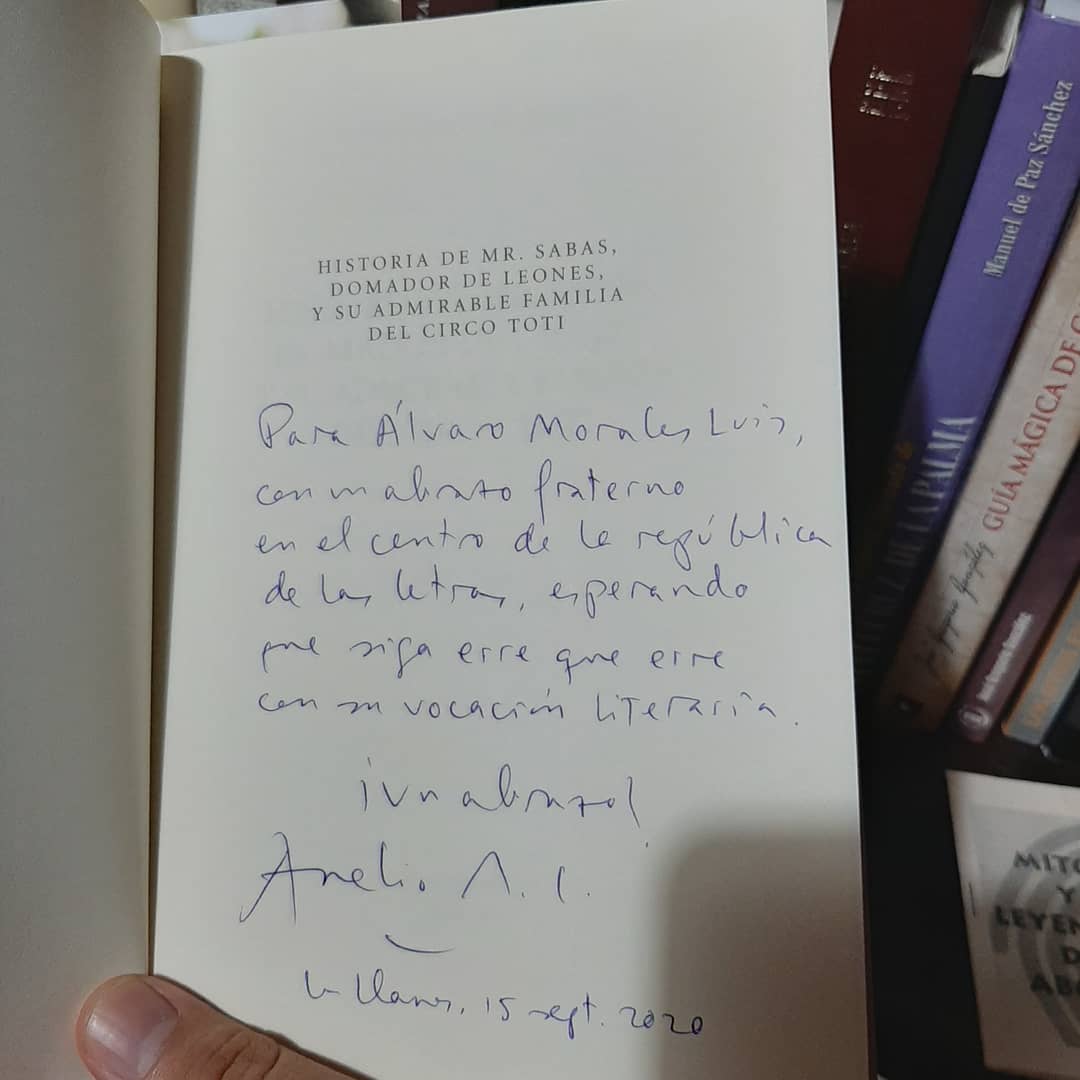 HISTORIA DE MR. SABAS,
DOMADOR DE LEONES,
Y SU ADMIRABLE FAMILIA
DEL CIRCO TOTI
Para Álvaro Morales Luis,
con un abrazo fraterno
en el centro de la república
de las letras, esperando
que siga erre que erre
con su vocación literaria.
¡Un abrazo!
Anelio
Llanos, 15 sept. 2020
Manuel de Paz Sánchez
DE LA PALMA
GUÍA MÁGICA DE
MITO
Y
LEYEN
D
ABO